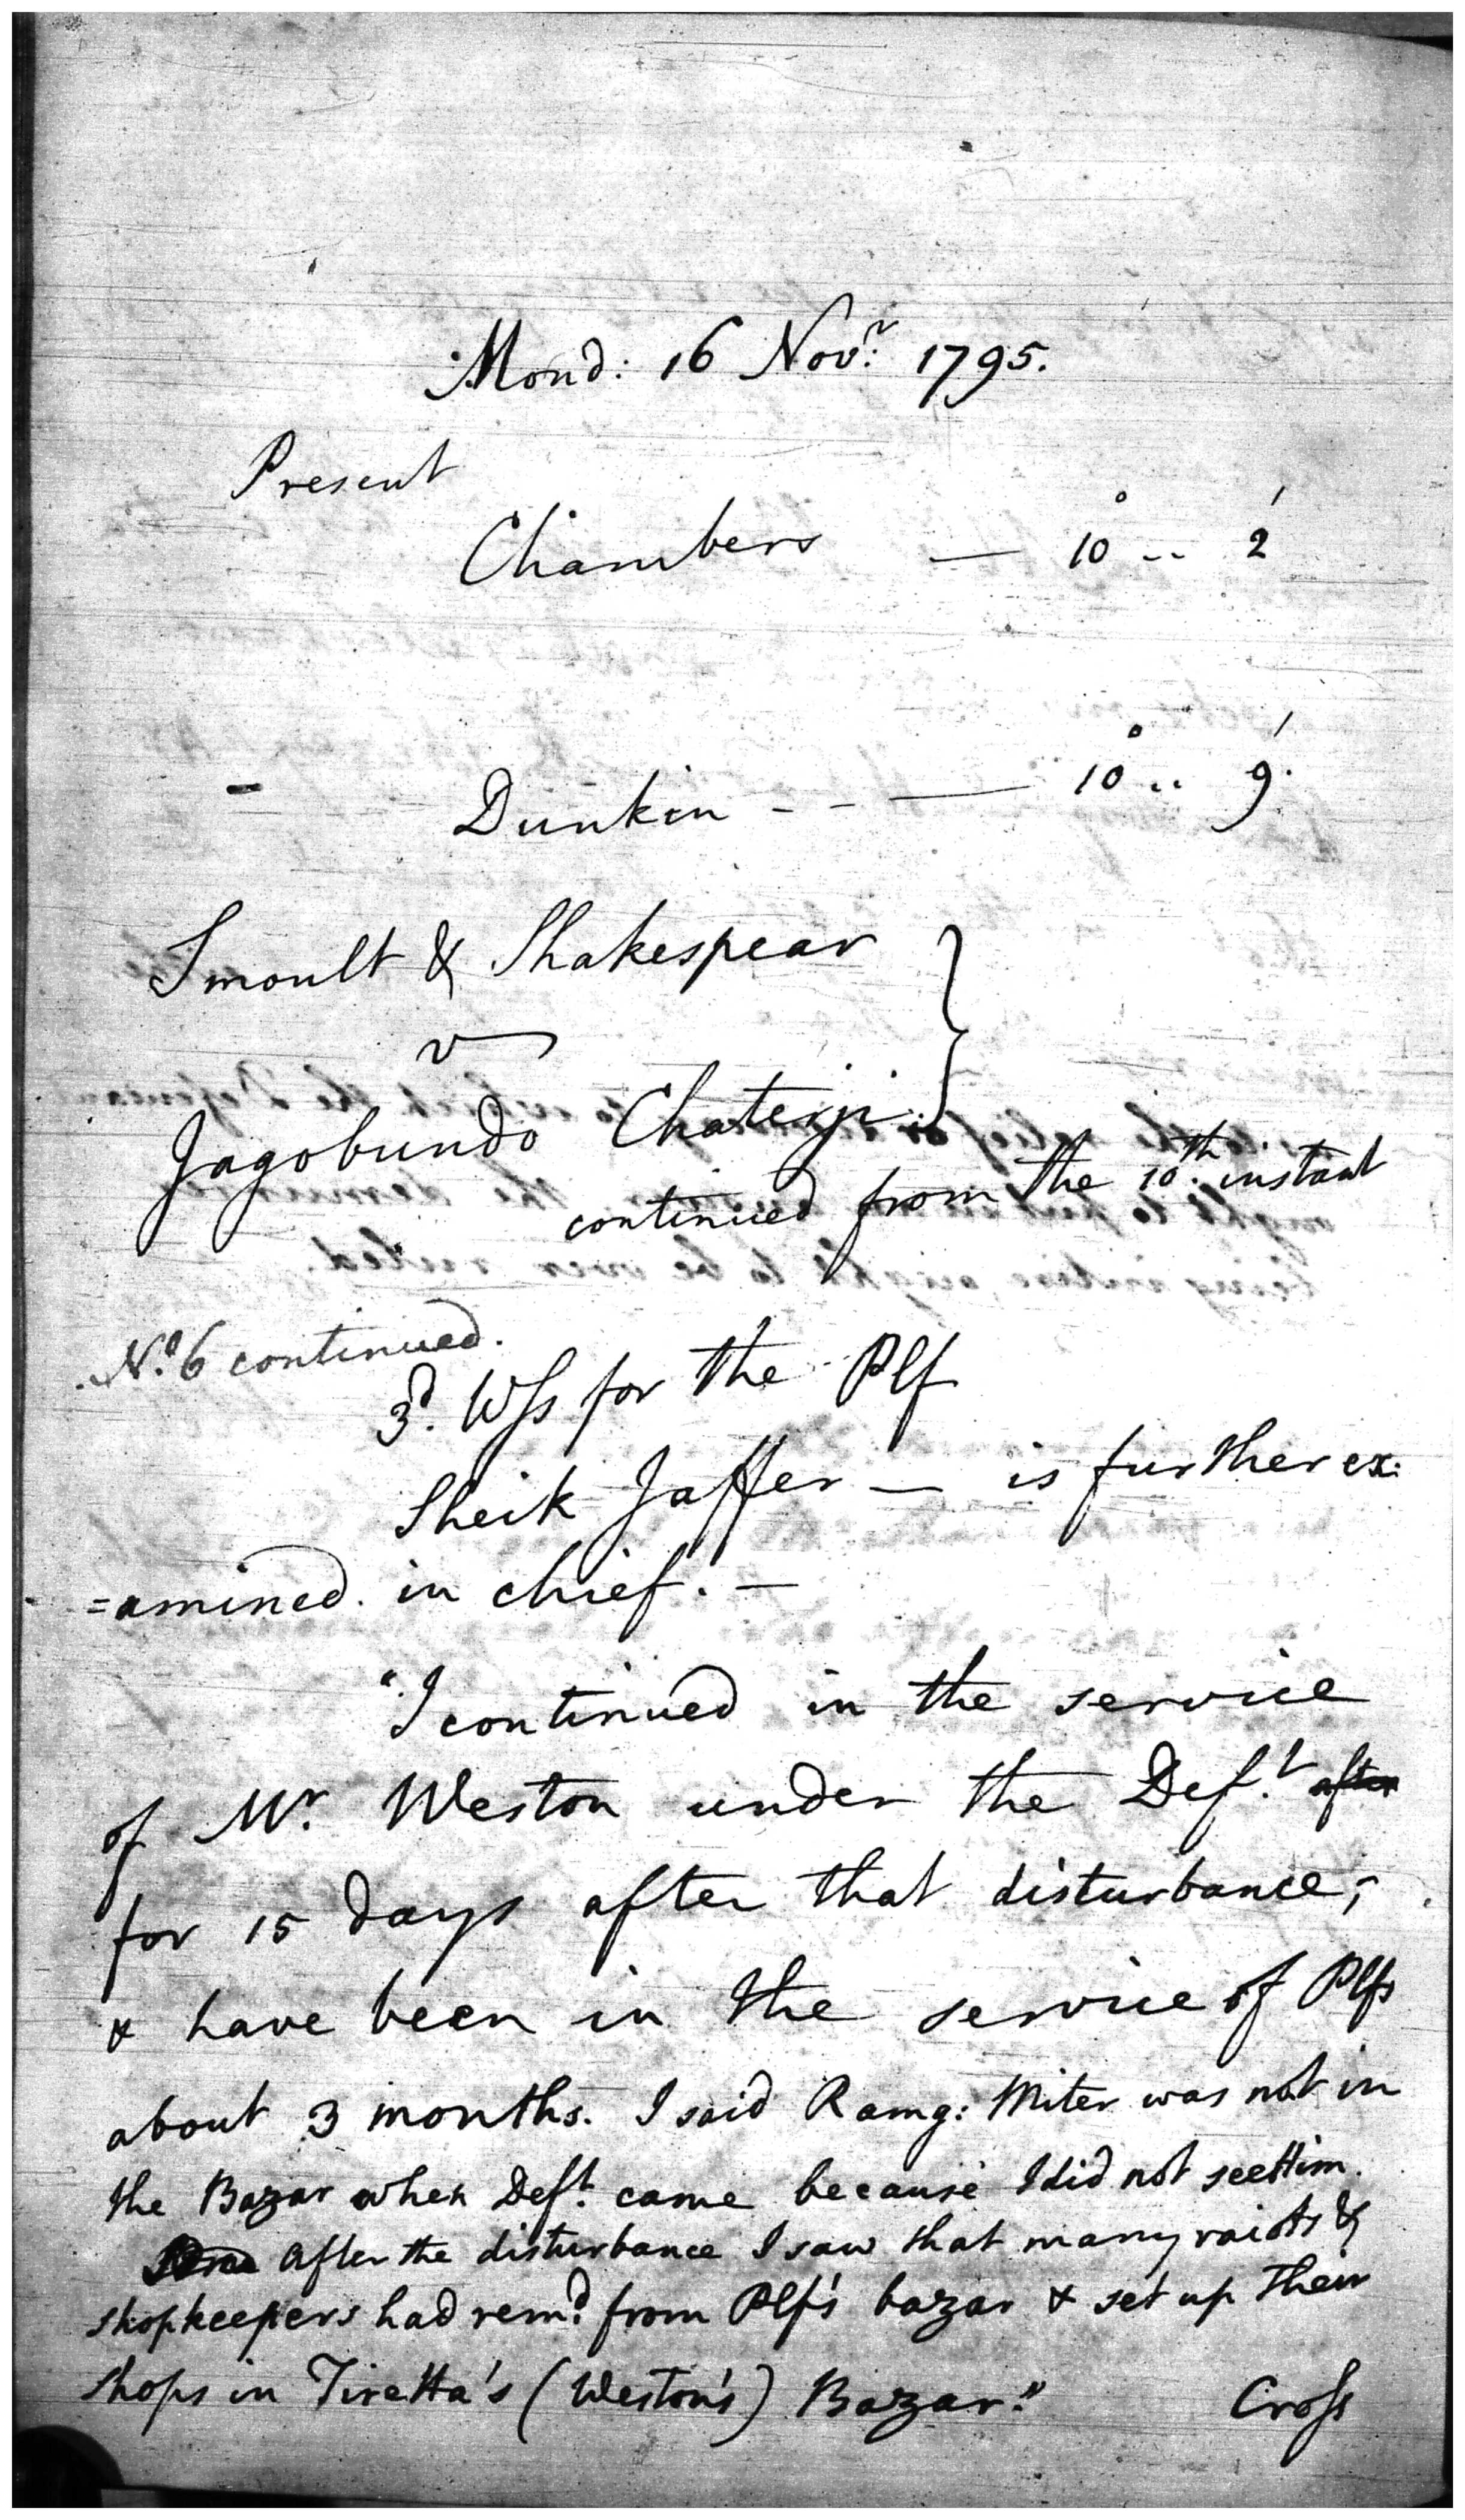 Mond: 16 Nov.r 1795.
Present
Chambers — 10° .. 2'
Dunkin - - — 10° .. 9'
Smoult & Shakespear
v
Jagobundo Chaterji.
continued from the 10th instant
No. 6 continued.
3d. Wss for the Plf
Sheik Jaffer — is further ex:
=amined. in chief. —
"I continued in the service
of Mr. Weston under the Def.t after
for 15 days after that disturbance,
& have been in the service of Plfs
about 3 months. I said Ramg: Miter was not in
the Bazar when Deft. came because I did not see Him.
After the disturbance I saw that many raiots &
shopkeepers had rem.d from Plf's bazar & set up their
shops in Tiretta's (Weston's) Bazar."
Cross